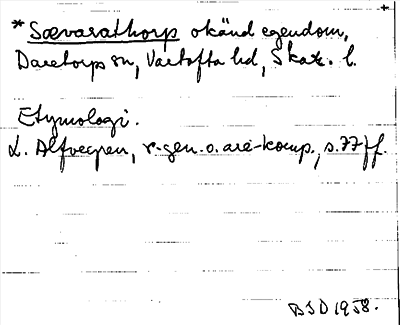 * Sævarathorp okänd egendom,
Daretorps sn, Vartofta hd, Skar. l.
Etymologi.
L. Alfvegren, r-gen. o. are-komp., s. 77 ff.
BSD 1958.